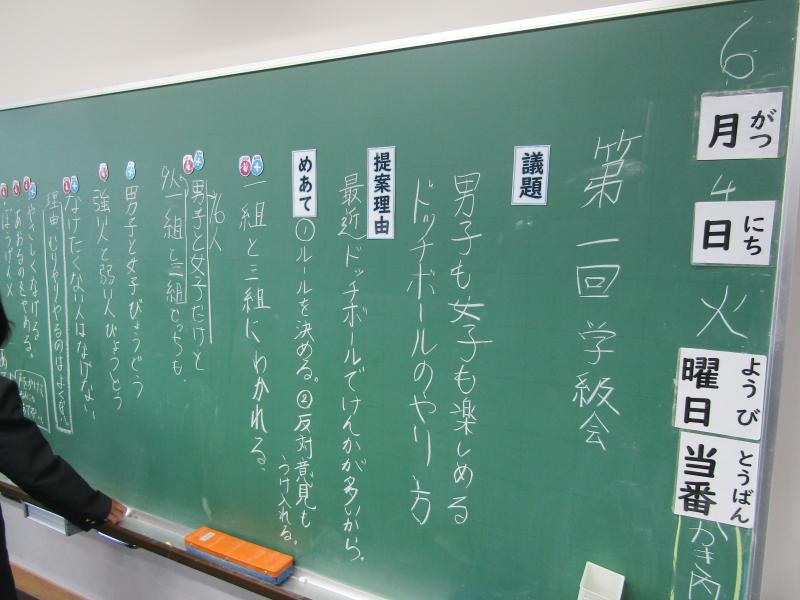 6月がつ
4日にち
火
曜日ようび
当番とうばん
かき内
第一回学級会
議題
男子も女子も楽しめる
ドッチボールのやり方
提案理由
最近ドッチボールでけんかが多いから。
めあて
①ルールを決める。②反対意見も
うけ入れる。
一組と三組にわかれる。
16人
男子と女子だけと
9人
一組と三組どっちも。
男子と女子びょうどう
強い人と弱い人びょうどう
なけたくない人はなげない。
理由 むりやりやるのはよくない
やさしくなげる